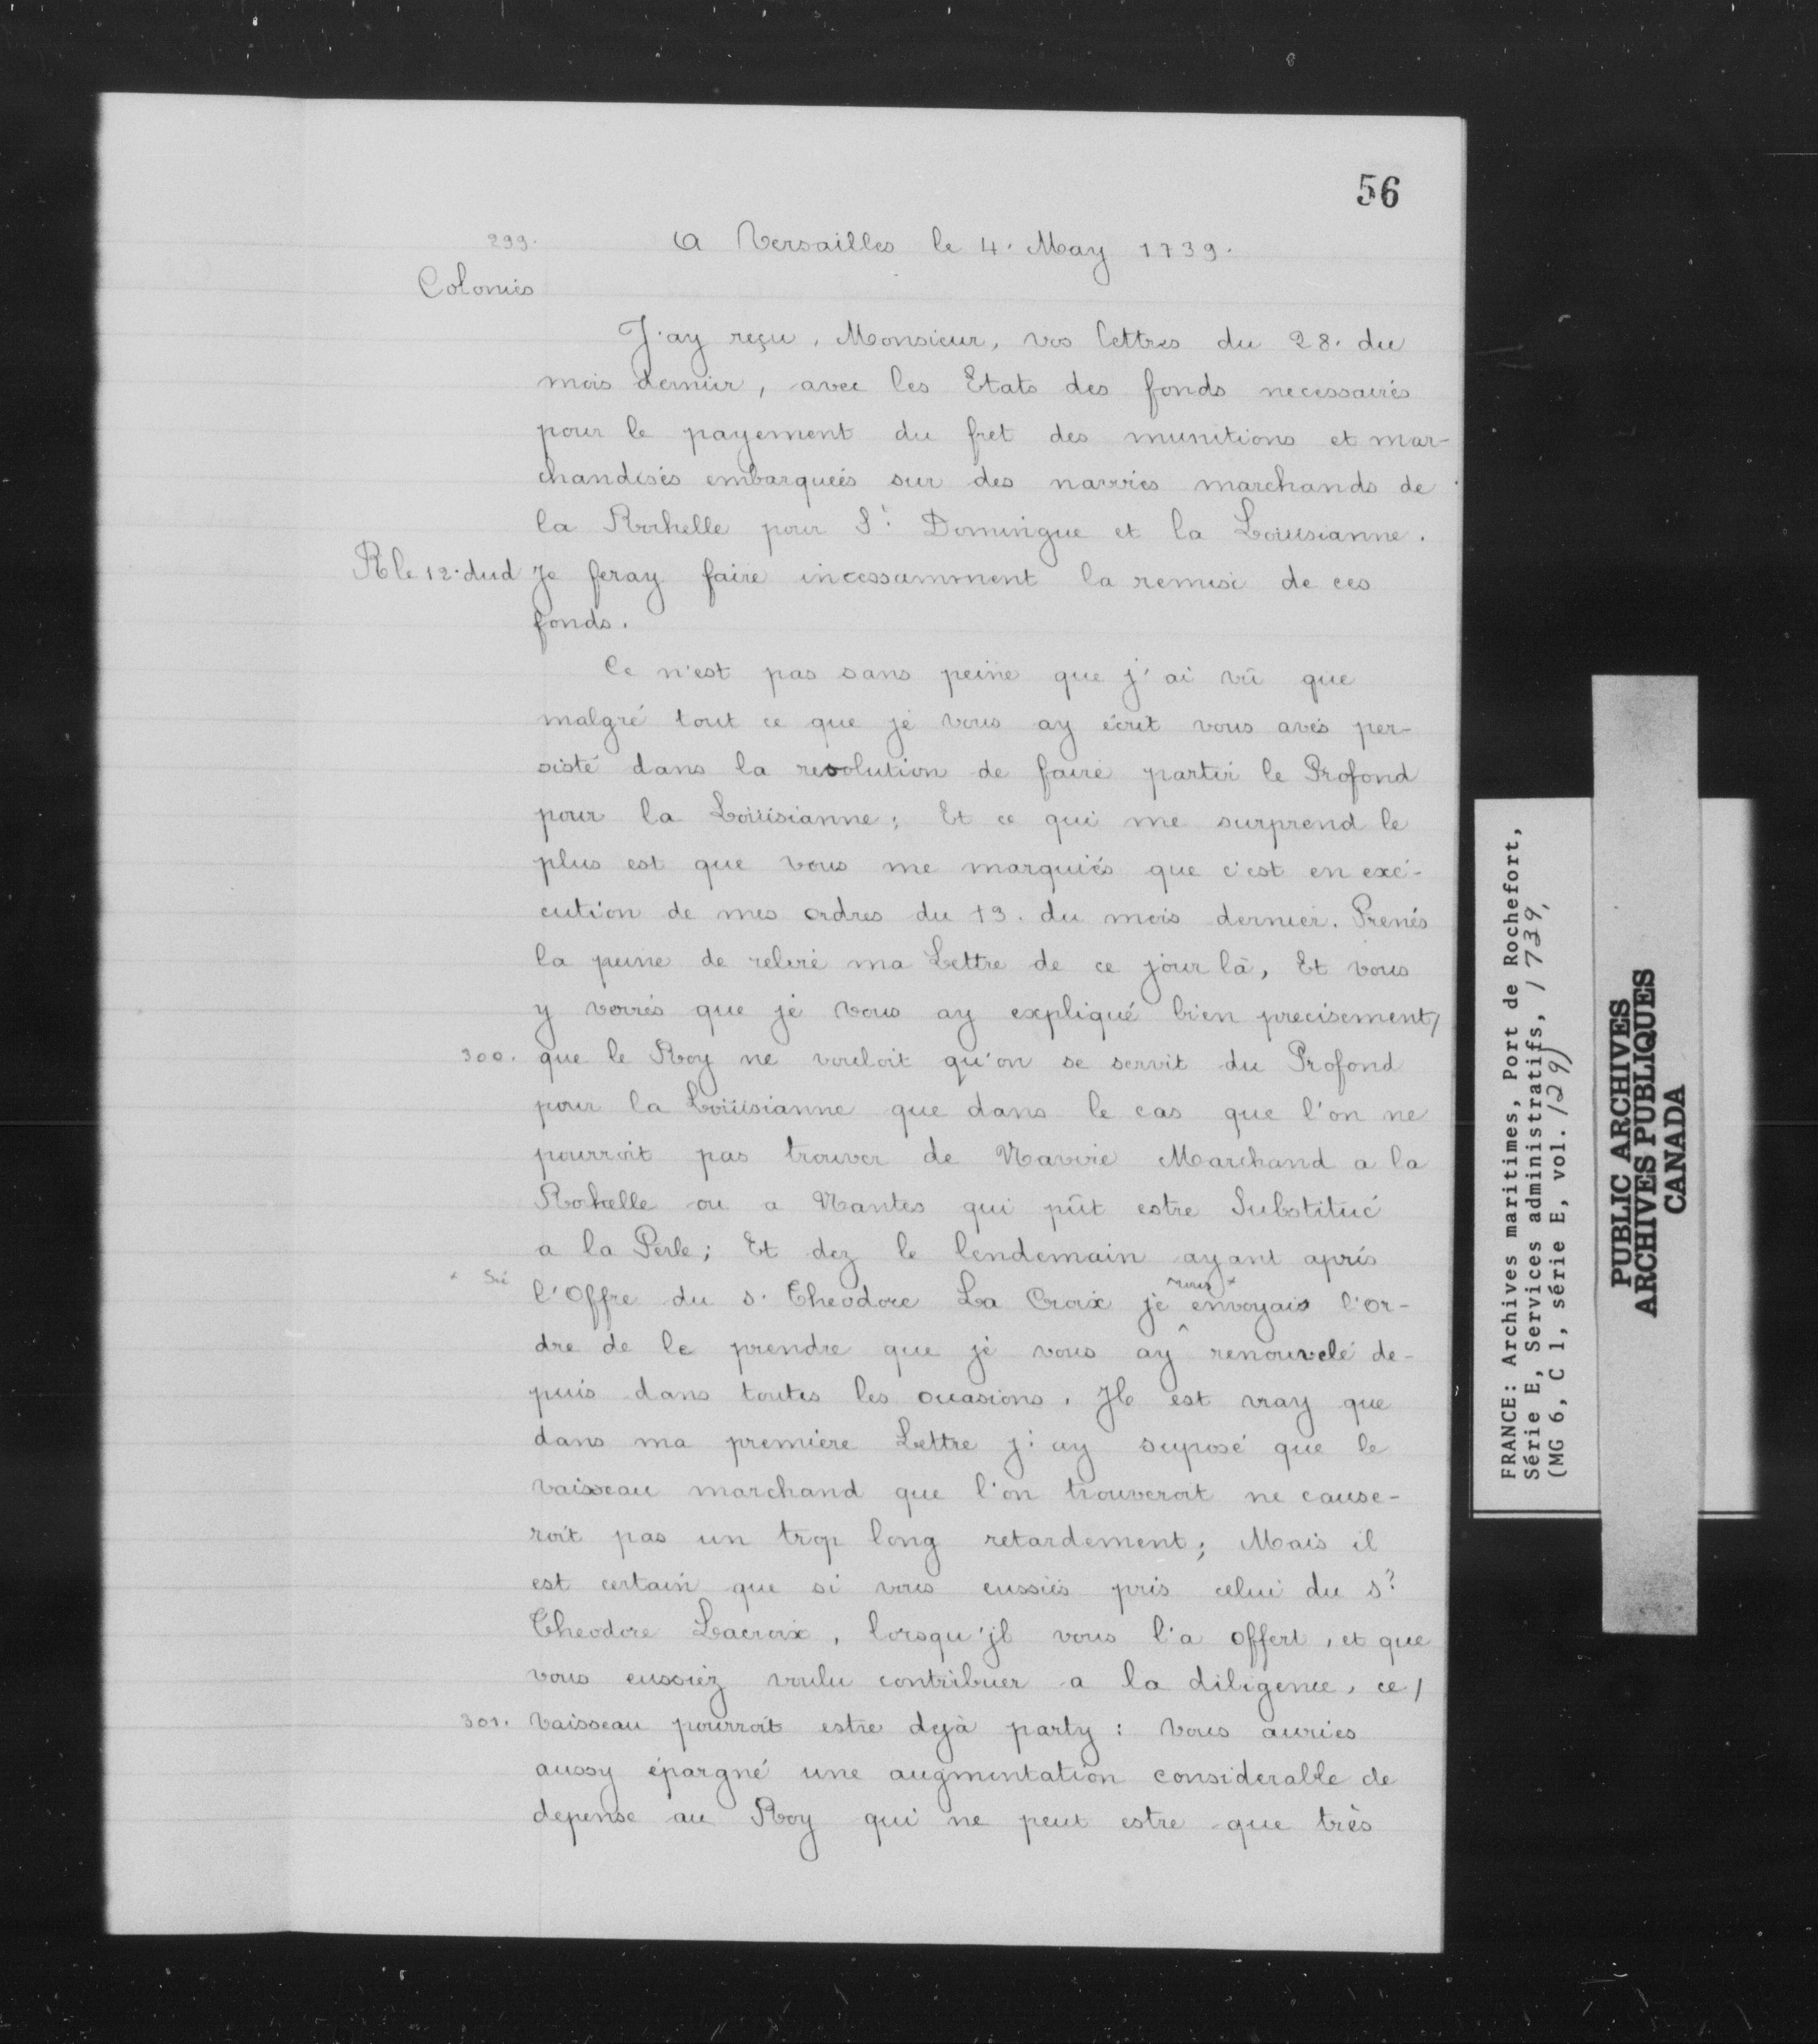 56
299.
A Versailles le 4. May 1739.
Colonies
J'ay reçu, Monsieur, vos lettres du 28. du
mois dernier, avec les Etats des fonds necessaires
pour le payement du fret des munitions et mar-
chandises embarquées sur des navires marchands de
la Rochelle pour St. Domingue et la Loüisianne.
R le 12. dud Je feray faire incessamment la remise de ces
fonds.
Ce n'est pas sans peine que j'ai vû que
malgré tout ce que je vous ay écrit vous avés per-
sisté dans la resolution de faire partir le Profond
pour la Loüisianne; Et ce qui me surprend le
plus est que vous me marquiés que c'est en exé-
cution de mes ordres du 13. du mois dernier. Prenés
la peine de relire ma Lettre de ce jour là, Et vous
y verrés que je vous ay expliqué bien precisement/
300. que le Roy ne vouloit qu'on se servit du Profond
pour la Loüisianne que dans le cas que l'on ne
pourroit pas trouver de Navire Marchand a la
Rochelle ou a Nantes qui pût estre Substitué
a la Perle; Et dez le lendemain ayant apris
x Sic l'Offre du s. Theodore La Croix je vous x envoyais l'or-
dre de le prendre que je vous ay renouvelé de-
puis dans toutes les occasions. Jl est vray que
dans ma premiere Lettre j'ay suposé que le
vaisseau marchand que l'on trouveroit ne cause-
roit pas un trop long retardement; Mais il
est certain que si vous eussiés pris celui du sr.
Theodore Lacroix, lorsqu'jl vous l'a offert, et que
vous eussiez voulu contribuer a la diligence, ce/
301. vaisseau pourroit estre dejà party: vous auriés
aussy épargné une augmentation considerable de
depense au Roy qui ne peut estre que très
FRANCE: Archives maritimes, Port de Rochefort,
Série E, Services administratifs, 1739,
(MG 6, C 1, série E, vol. 129)
PUBLIC ARCHIVES
ARCHIVES PUBLIQUES
CANADA